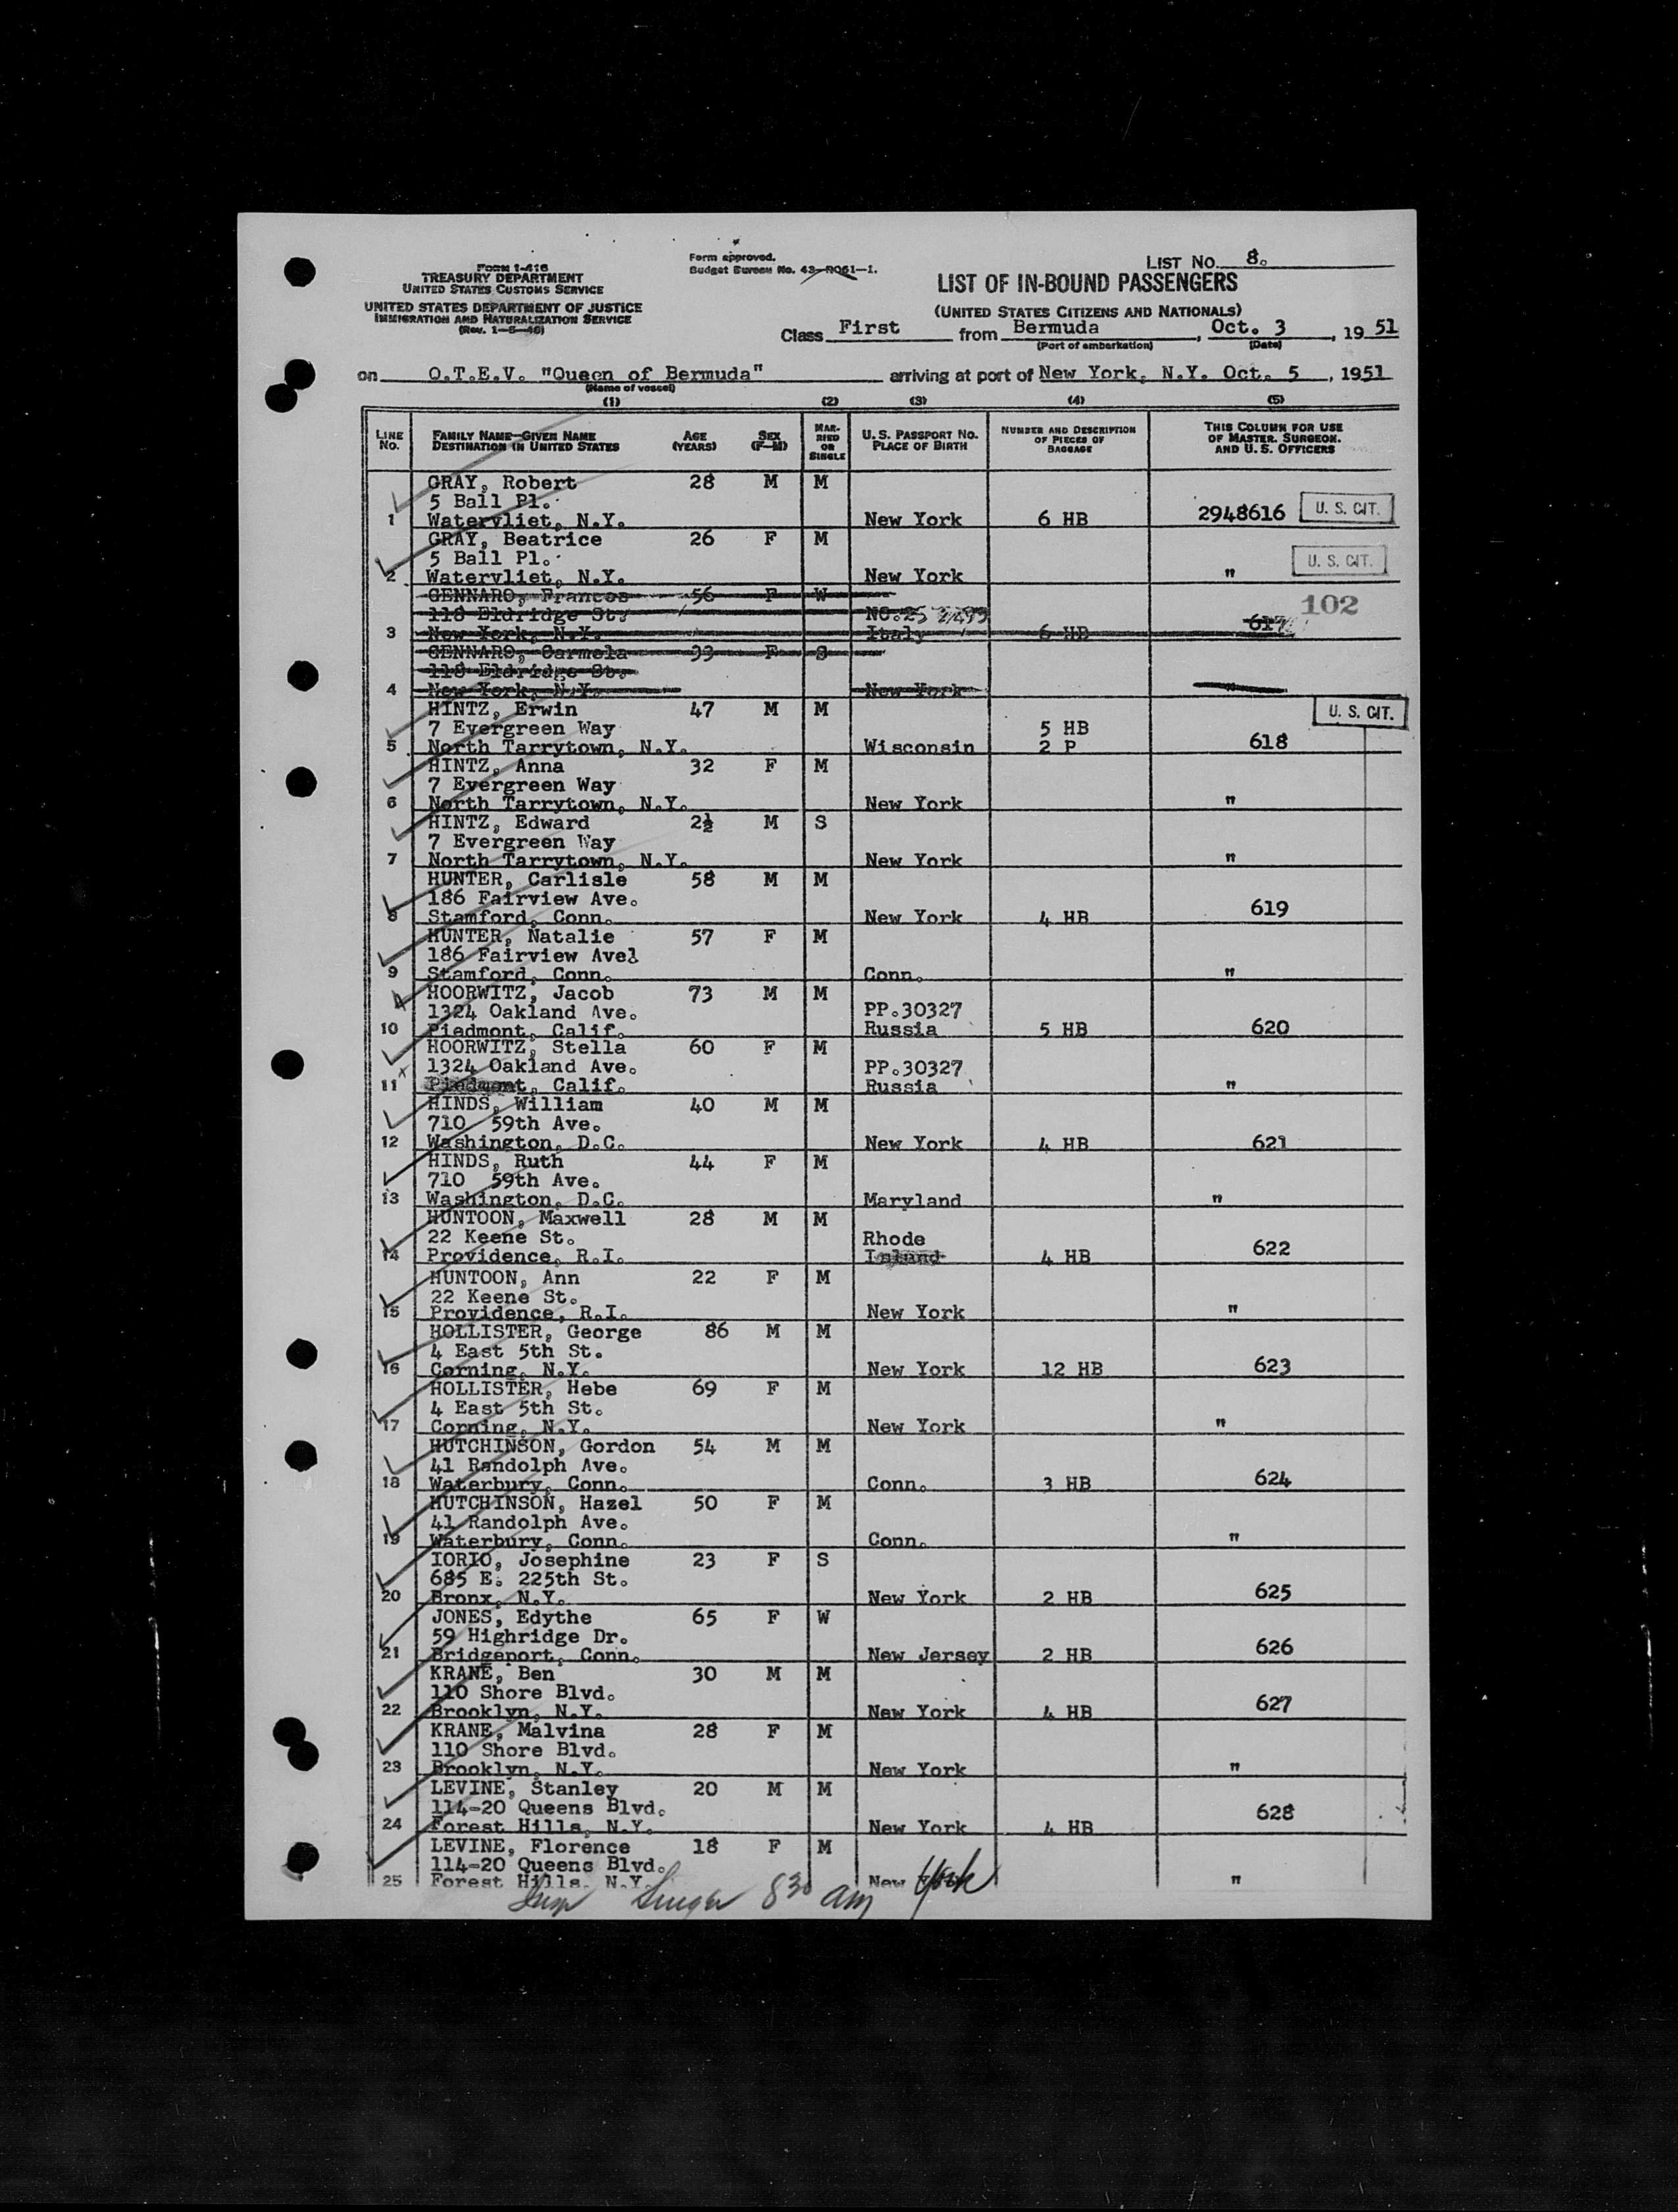 Form I-416
TREASURY DEPARTMENT
UNITED STATES CUSTOMS SERVICE
UNITED STATES DEPARTMENT OF JUSTICE
IMMIGRATION AND NATURALIZATION SERVICE
(Rev. 1-5-49)
Form approved.
Budget Bureau No. 43-R061-1.
LIST NO. 8.
LIST OF IN-BOUND PASSENGERS
(UNITED STATES CITIZENS AND NATIONALS)
Class First from Bermuda, Oct. 3, 1951
(Port of embarkation) (Date)
on O.T.E.V. "Queen of Bermuda" arriving at port of New York, N.Y. Oct. 5, 1951
(Name of vessel)
(1) (2) (3) (4) (5)
LINE NO. FAMILY NAME—GIVEN NAME DESTINATION IN UNITED STATES AGE (YEARS) SEX (F-M) MARRIED OR SINGLE U.S. PASSPORT NO. PLACE OF BIRTH NUMBER AND DESCRIPTION OF PIECES OF BAGGAGE THIS COLUMN FOR USE OF MASTER, SURGEON, AND U.S. OFFICERS
GRAY, Robert 28 M M
5 Ball Pl.
1 Watervliet, N.Y. New York 6 HB 2948616 U. S. CIT.
GRAY, Beatrice 26 F M
5 Ball Pl.
2 Watervliet, N.Y. New York " U. S. CIT.
GENNARO, Frances 56 F W
118 Eldridge St. NO.25 102
3 New York, N.Y. Italy 6 HB 617
GENNARO, Carmela 33 F S
118 Eldridge St.
4 New York, N.Y. New York
HINTZ, Erwin 47 M M U. S. CIT.
7 Evergreen Way 5 HB
5 North Tarrytown, N.Y. Wisconsin 2 P 618
HINTZ, Anna 32 F M
7 Evergreen Way
6 North Tarrytown, N.Y. New York "
HINTZ, Edward 2½ M S
7 Evergreen Way
7 North Tarrytown, N.Y. New York "
HUNTER, Carlisle 58 M M
186 Fairview Ave.
8 Stamford, Conn. New York 4 HB 619
HUNTER, Natalie 57 F M
186 Fairview Avel
9 Stamford, Conn. Conn. "
HOORWITZ, Jacob 73 M M
1324 Oakland Ave. PP.30327
10 Piedmont, Calif. Russia 5 HB 620
HOORWITZ, Stella 60 F M
1324 Oakland Ave. PP.30327
11 Piedmont, Calif. Russia "
HINDS, William 40 M M
710 59th Ave.
12 Washington, D.C. New York 4 HB 621
HINDS, Ruth 44 F M
710 59th Ave.
13 Washington, D.C. Maryland "
HUNTOON, Maxwell 28 M M
22 Keene St. Rhode
14 Providence, R.I. Island 4 HB 622
HUNTOON, Ann 22 F M
22 Keene St.
15 Providence, R.I. New York "
HOLLISTER, George 86 M M
4 East 5th St.
16 Corning, N.Y. New York 12 HB 623
HOLLISTER, Hebe 69 F M
4 East 5th St.
17 Corning, N.Y. New York "
HUTCHINSON, Gordon 54 M M
41 Randolph Ave.
18 Waterbury, Conn. Conn. 3 HB 624
HUTCHINSON, Hazel 50 F M
41 Randolph Ave.
19 Waterbury, Conn. Conn. "
IORIO, Josephine 23 F S
685 E. 225th St.
20 Bronx, N.Y. New York 2 HB 625
JONES, Edythe 65 F W
59 Highridge Dr.
21 Bridgeport, Conn. New Jersey 2 HB 626
KRANE, Ben 30 M M
110 Shore Blvd.
22 Brooklyn, N.Y. New York 4 HB 627
KRANE, Malvina 28 F M
110 Shore Blvd.
23 Brooklyn, N.Y. New York "
LEVINE, Stanley 20 M M
114-20 Queens Blvd.
24 Forest Hills, N.Y. New York 4 HB 628
LEVINE, Florence 18 F M
114-20 Queens Blvd.
25 Forest Hills, N.Y. New York "
8 30 am